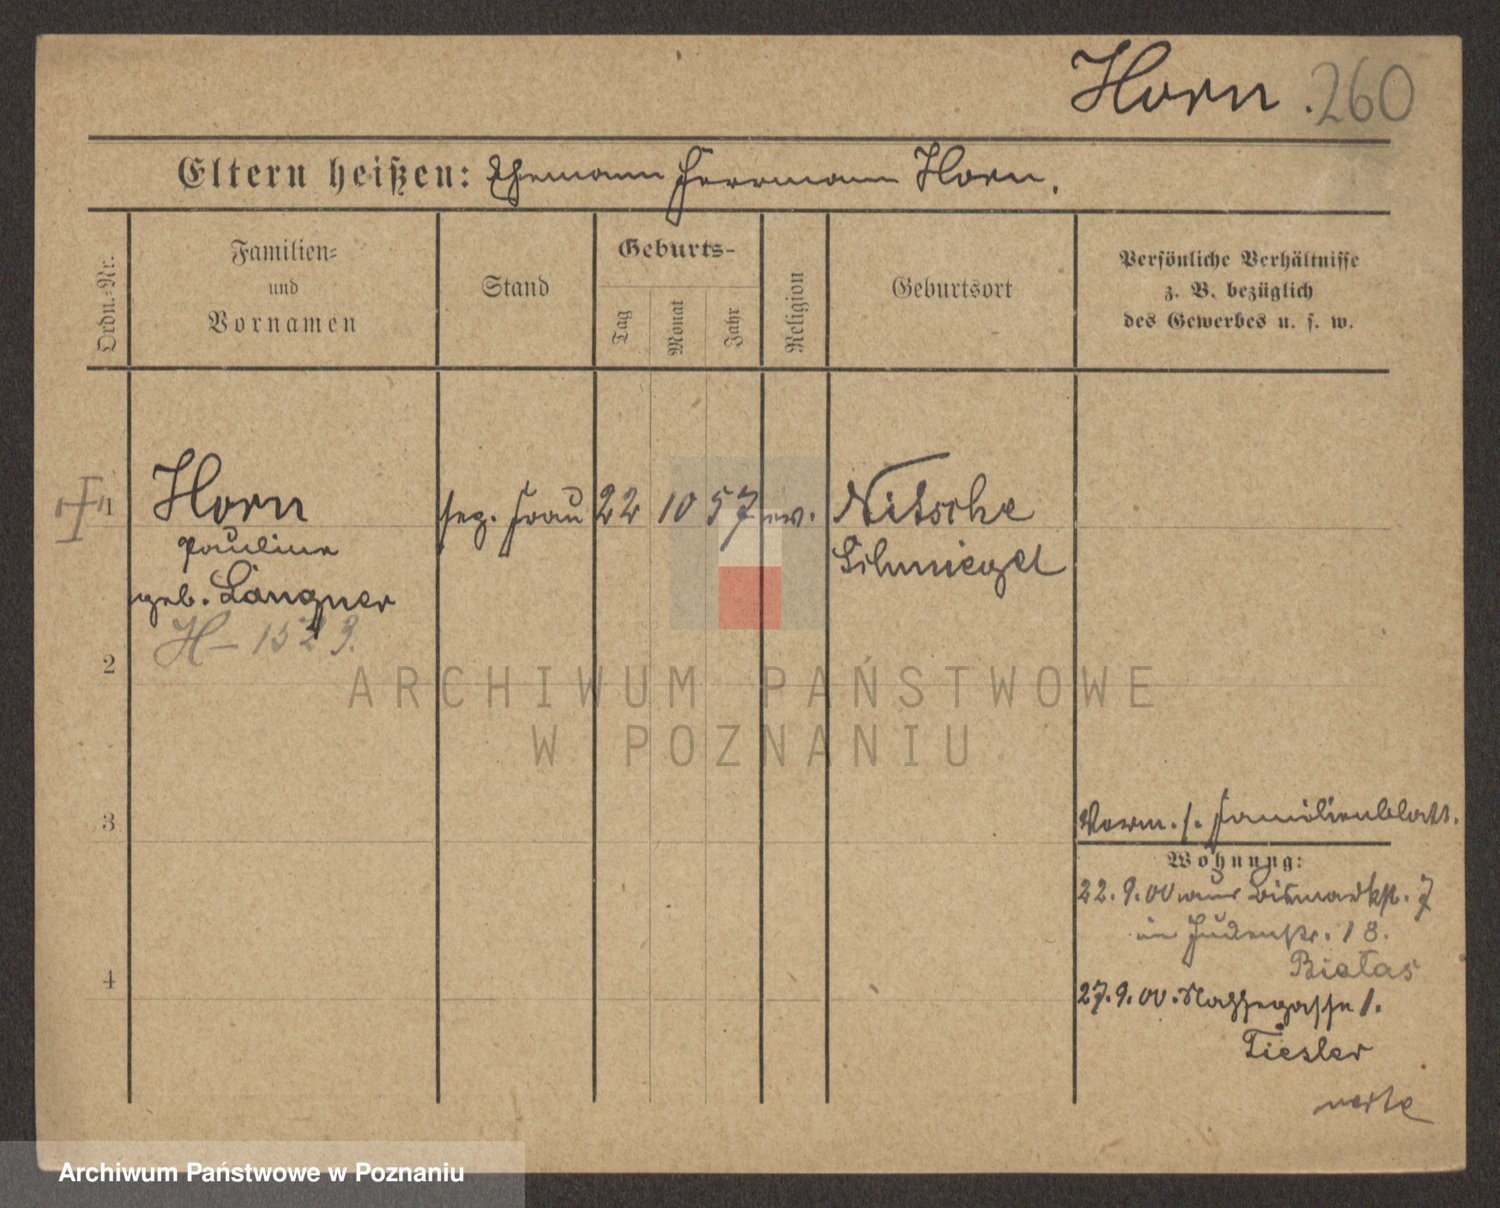 Horn. 260
Eltern heißen: Ehemann Herrmann Horn.
Ordn.-Nr.
Familien-
und
Vornamen
Stand
Geburts-
Tag
Monat
Jahr
Religion
Geburtsort
Persönliche Verhältnisse
z. B. bezüglich
des Gewerbes u. s. w.
1 Horn sep. Frau 22 10 57 ev. Nitsche
Pauline Schmiegel
geb. Langner
H - 1523.
2
ARCHIWUM PAŃSTWOWE
W POZNANIU
3
Vorm. s. Familienblatt.
Wohnung:
22. 9. 00 aus Bismarckstr. 7
in Judenstr. 18.
Bialas
4
27. 9. 00. Nassegasse 1.
Tiesler
Archiwum Państwowe w Poznaniu